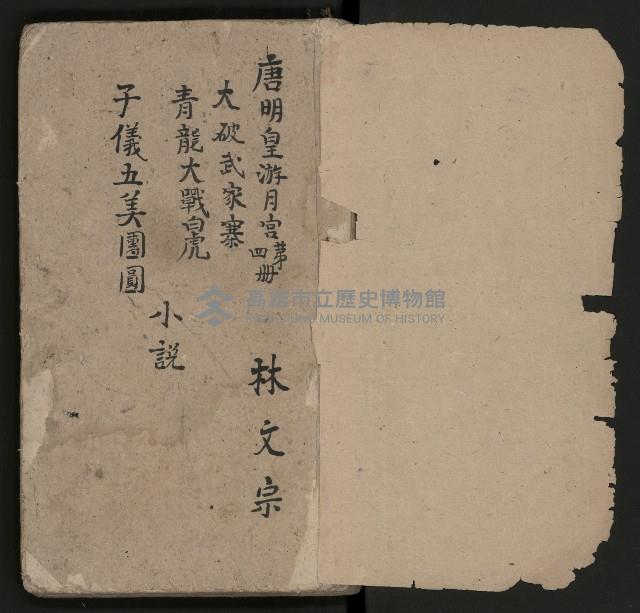 唐明皇游月宮第四册
大破武家寨
青龍大戰白虎
子儀五美團圓
小説
林文宗
高雄市立歷史博物館
KAOHSIUNG MUSEUM OF HISTORY